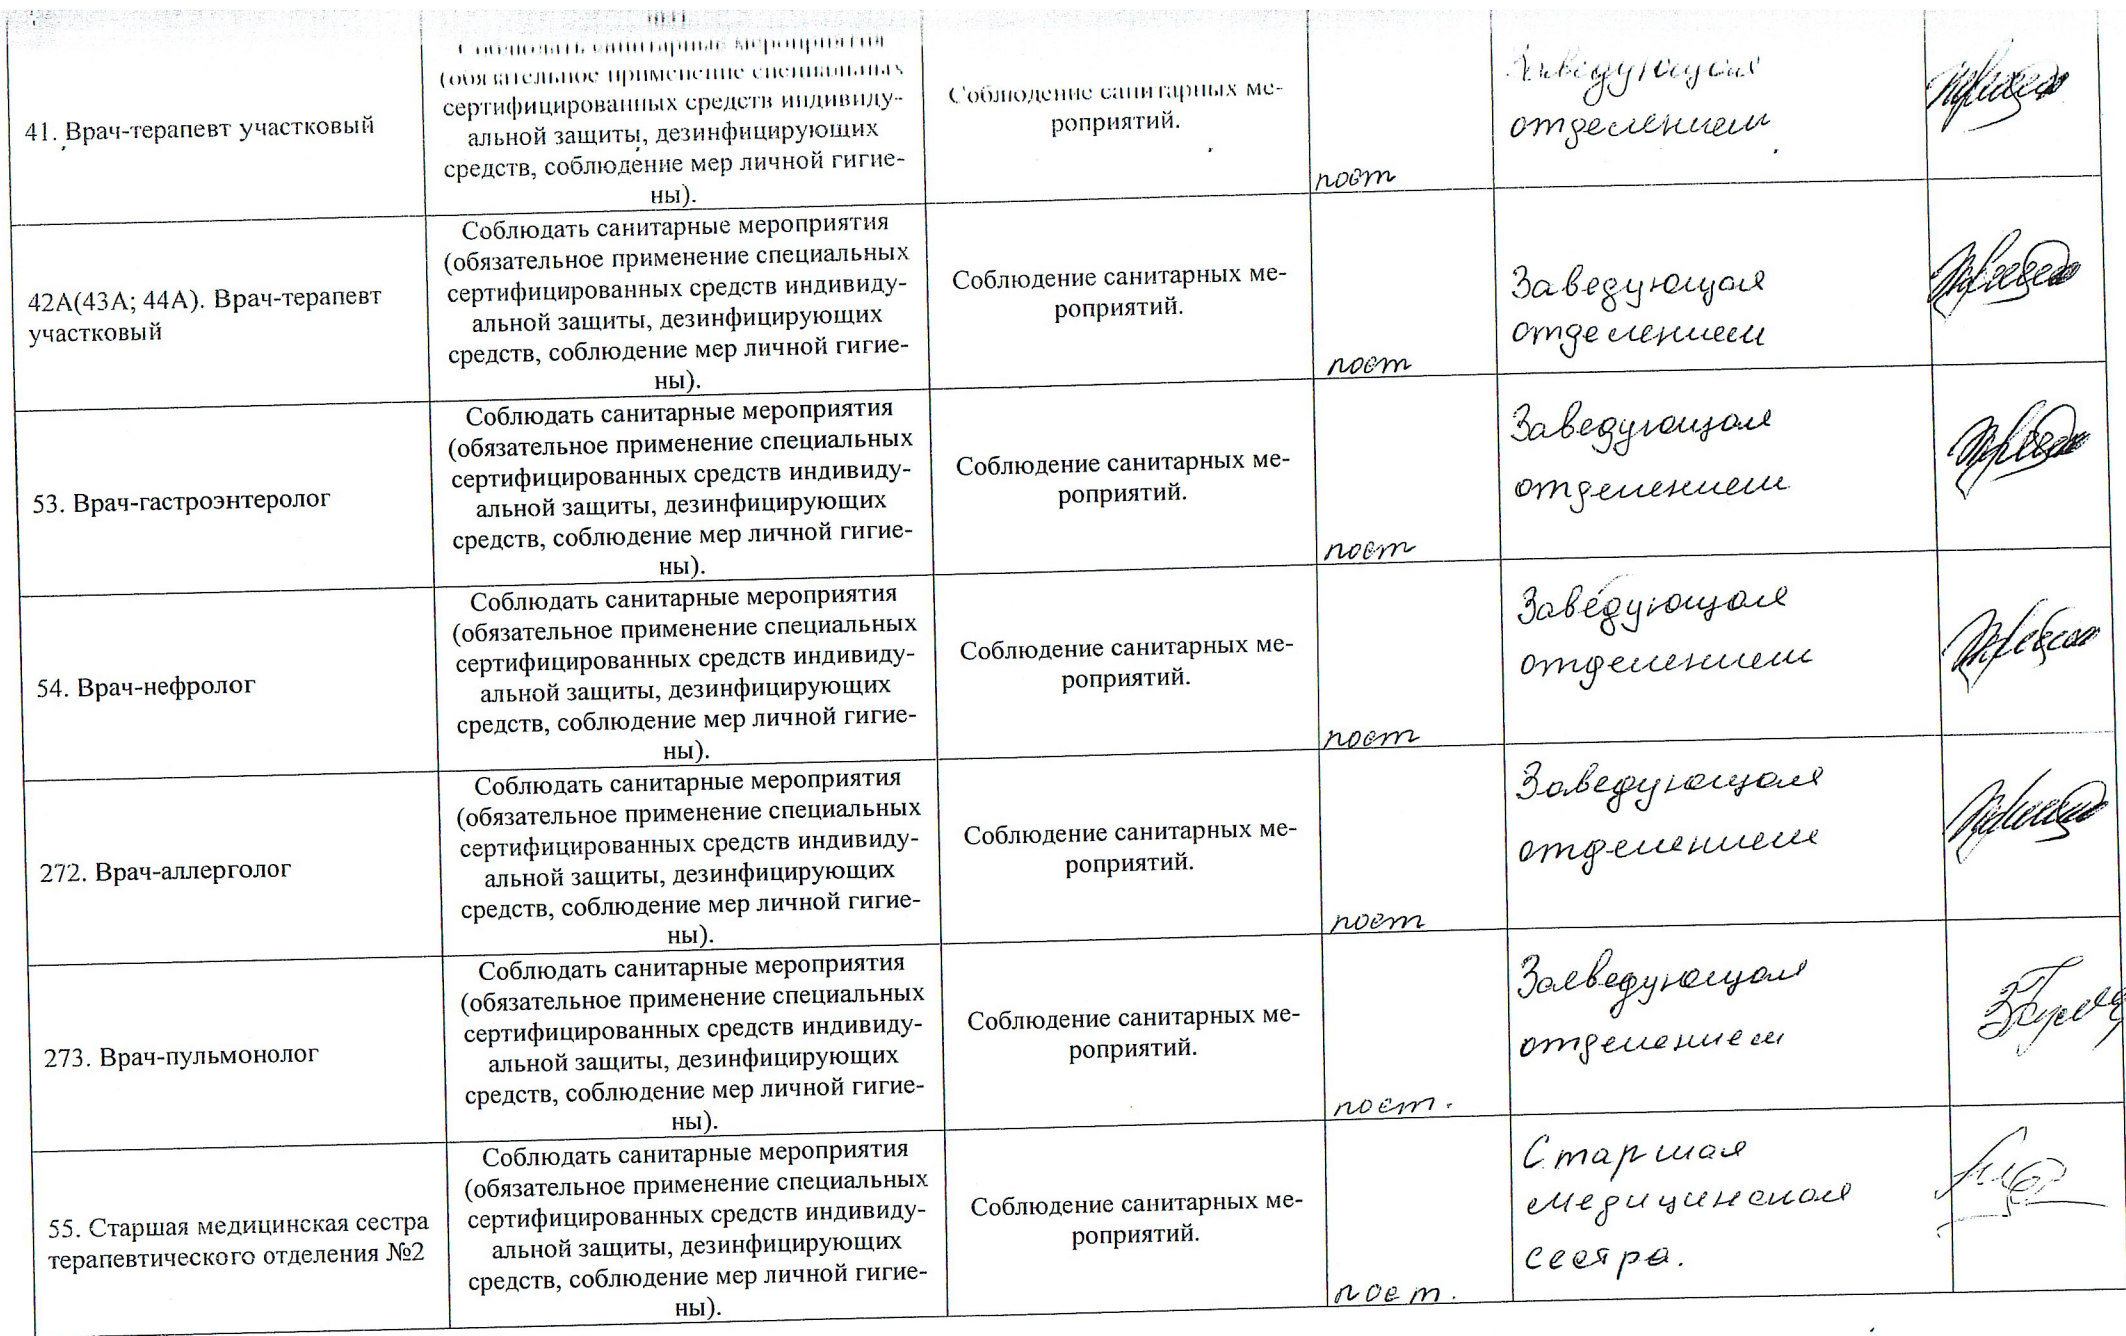 41. Врач-терапевт участковый
Соблюдать санитарные мероприятия
(обязательное применение специальных
сертифицированных средств индивиду-
альной защиты, дезинфицирующих
средств, соблюдение мер личной гигие-
ны).
Соблюдение санитарных ме-
роприятий.
пост
Заведующая
отделением
42А(43А; 44А). Врач-терапевт
участковый
Соблюдать санитарные мероприятия
(обязательное применение специальных
сертифицированных средств индивиду-
альной защиты, дезинфицирующих
средств, соблюдение мер личной гигие-
ны).
Соблюдение санитарных ме-
роприятий.
пост
Заведующая
отделением
53. Врач-гастроэнтеролог
Соблюдать санитарные мероприятия
(обязательное применение специальных
сертифицированных средств индивиду-
альной защиты, дезинфицирующих
средств, соблюдение мер личной гигие-
ны).
Соблюдение санитарных ме-
роприятий.
пост
Заведующая
отделением
54. Врач-нефролог
Соблюдать санитарные мероприятия
(обязательное применение специальных
сертифицированных средств индивиду-
альной защиты, дезинфицирующих
средств, соблюдение мер личной гигие-
ны).
Соблюдение санитарных ме-
роприятий.
пост
Заведующая
отделением
272. Врач-аллерголог
Соблюдать санитарные мероприятия
(обязательное применение специальных
сертифицированных средств индивиду-
альной защиты, дезинфицирующих
средств, соблюдение мер личной гигие-
ны).
Соблюдение санитарных ме-
роприятий.
пост
Заведующая
отделением
273. Врач-пульмонолог
Соблюдать санитарные мероприятия
(обязательное применение специальных
сертифицированных средств индивиду-
альной защиты, дезинфицирующих
средств, соблюдение мер личной гигие-
ны).
Соблюдение санитарных ме-
роприятий.
пост.
Заведующая
отделением
55. Старшая медицинская сестра
терапевтического отделения №2
Соблюдать санитарные мероприятия
(обязательное применение специальных
сертифицированных средств индивиду-
альной защиты, дезинфицирующих
средств, соблюдение мер личной гигие-
ны).
Соблюдение санитарных ме-
роприятий.
пост.
Старшая
медицинская
сестра.